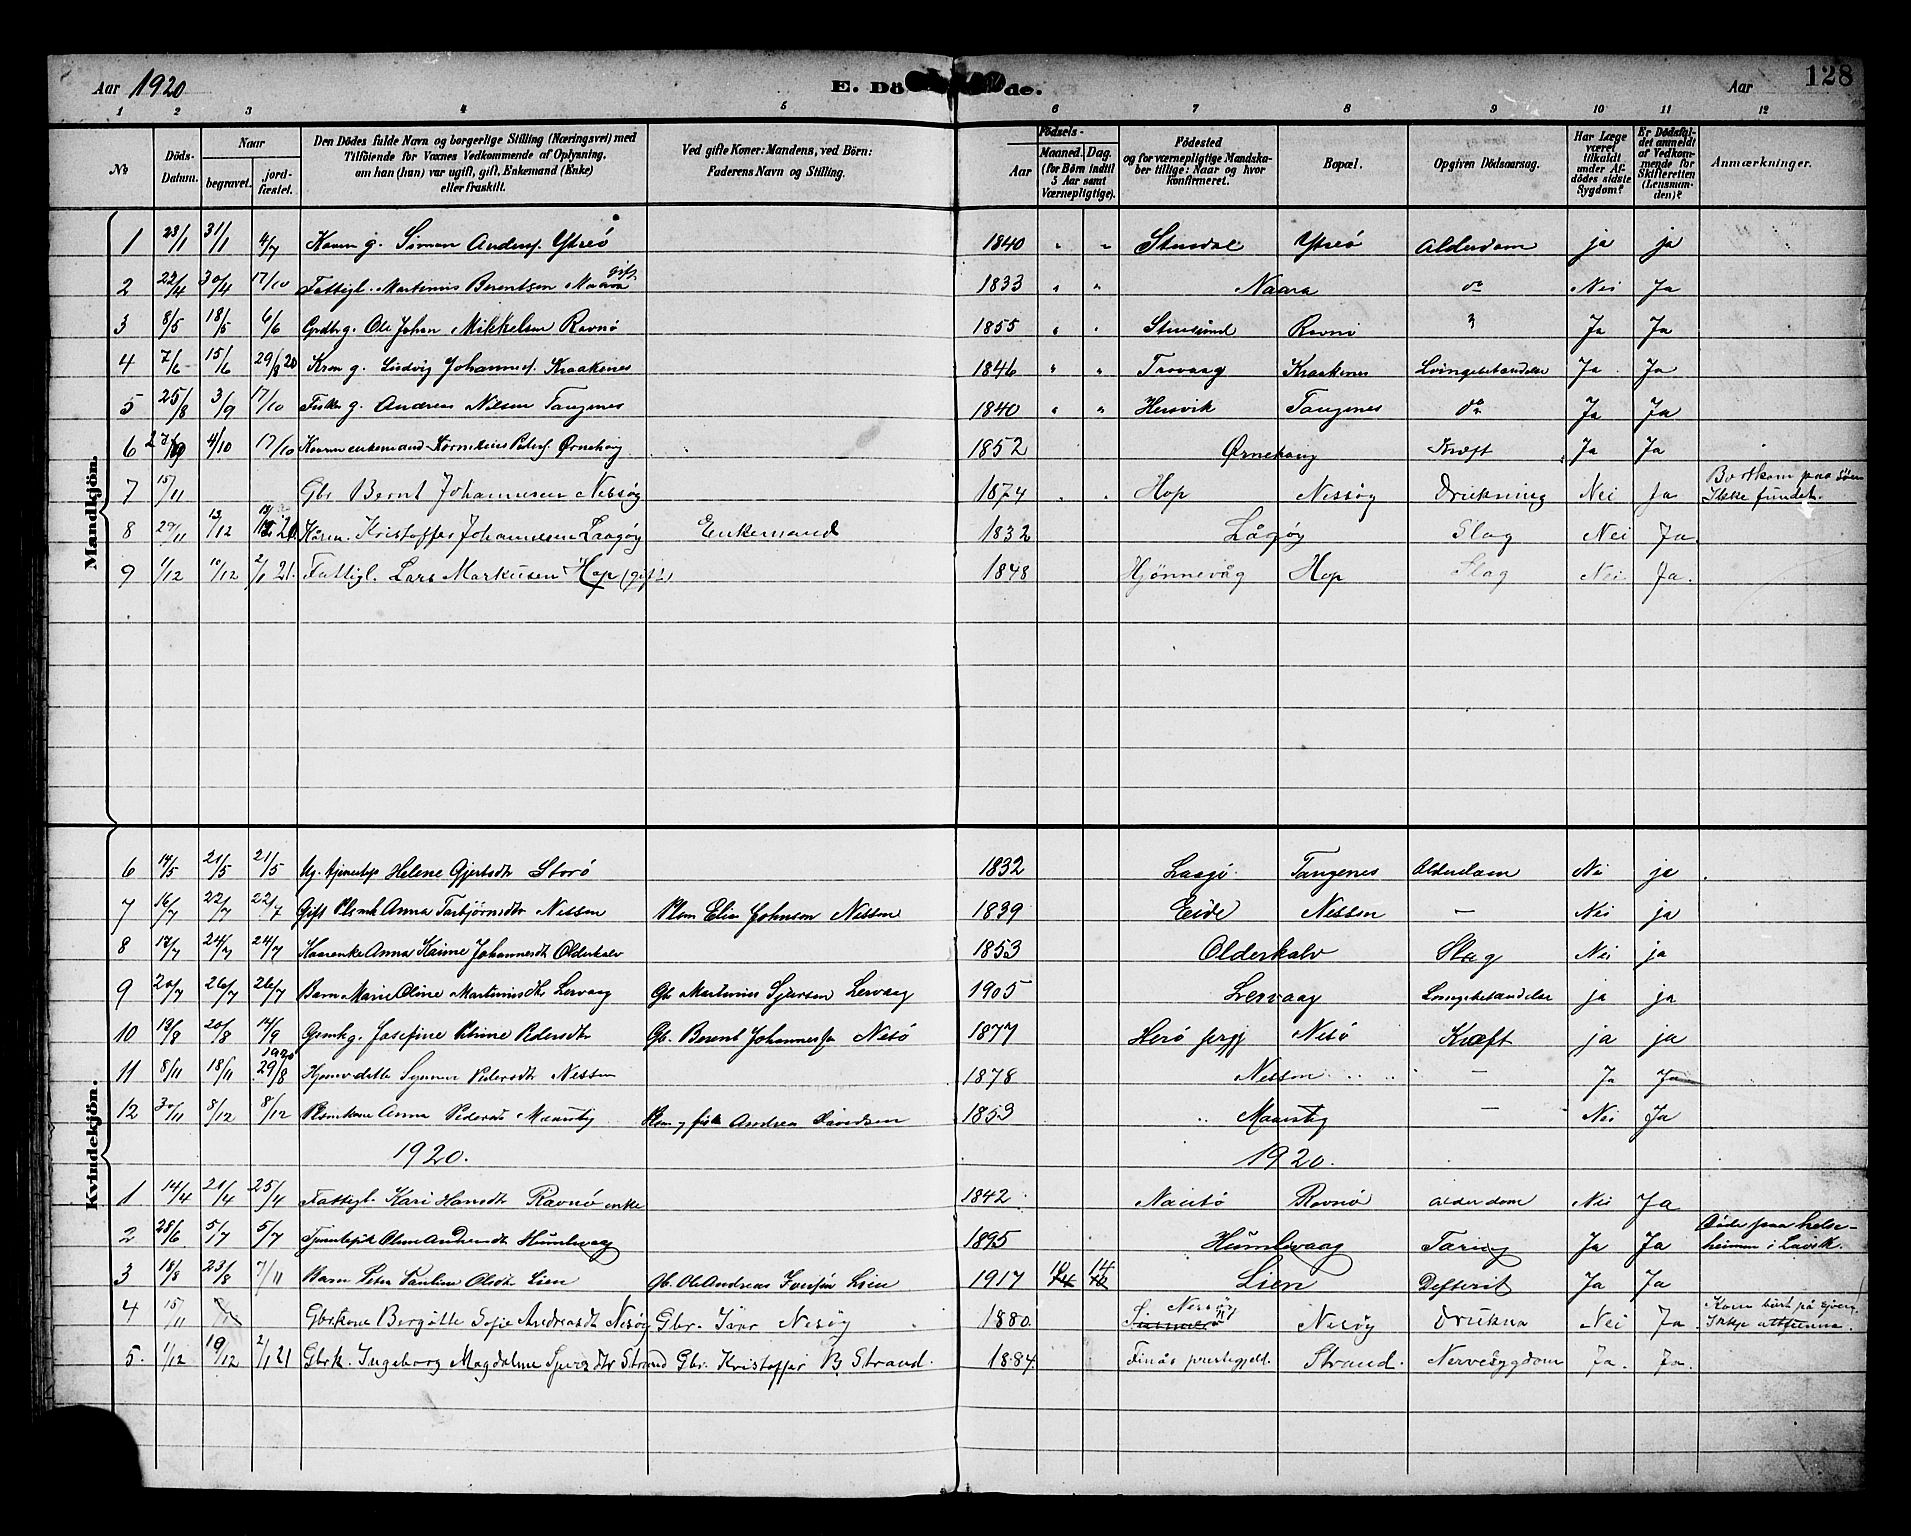 Aar 1920 E. Dö de. Aar 128
1 2 3 4 5 6 7 8 9 10 11 12
No
Döds-Datum.
Naar
begravet.
jordfæstet.
Den Dödes fulde Navn og borgerlige Stilling (Næringsvei) med
Tilföiende for Voxnes Vedkommende af Oplysning,
om han (hun) var ugift, gift, Enkemand (Enke)
eller fraskilt.
Ved gifte Koner: Mandens, ved Börn:
Faderens Navn og Stilling.
Födsels-
Aar
Maaned. Dag.
(for Börn indtil
5 Aar samt
Værnepligtige).
Födested
og for værnepligtige Mandskaber tillige: Naar og hvor
konfirmeret.
Bopæl.
Opgiven Dödsaarsag.
Har Læge
været
tilkaldt
under Afdödes sidste
Sygdom?
Er Dödsfaldet anmeldt
af Vedkommende for
Skifteretten
(Lensmanden)?
Anmærkninger.
Mandkjön.
1 28/1 31/1 4/7 Simon Anders. Ytreö 1840 " " Ytreö Alderdom ja ja
2 22/4 30/4 17/10 Fattigl. Martinus Berentsen Naara gift 1833 " " Naara do Nei Ja
3 8/5 18/5 6/6 Ole Johan Mikkelsen Ravnö 1855 " " Ravnö Ja Ja
4 7/6 15/6 29/8 20 Ludvig Johannes. Kraakenes 1846 " " Kraakenes Ja Ja
5 25/8 3/9 17/10 g. Andreas Nilsen Tangenes 1840 " " Hersvik Tangenes do Ja Ja
6 4/10 17/10 enkemand Kornelius Peters. Ørnehaug 1852 Ørnehaug Kræft Ja Ja
7 15/11 Gbr Bernt Johannesen Nessøy 1874 " " Hop Nessøy Drukning Nei Ja
Bortkom paa Söen
Ikke fundet.
8 29/11 13/12 Kristoffer Johannesen Laagøy Enkemand 1832 Lågøy Slag Nei Ja
9 1/12 10/12 2/1 21. Fattigl. Lars Markusen Hop (gift) 1848 Hjønnevåg Hop Slag Nei Ja.
Kvindekjön.
6 14/5 21/5 21/5 Helene Gjertsdtr Storö 1832 Laagö Tangenes Alderdom Nei ja
7 16/7 22/7 22/7 Gift Anna Torbjørnsdtr Nessen Elia Johnson Nessen 1839 Eide Nessen — Nei ja
8 17/7 24/7 24/7 Anna Johannesdt Olderkalv 1853 Olderkalv Slag Nei ja
9 20/7 26/7 26/7 Barn Marie Oline Martinusdtr Lervaag Gb Martinus Sjursen Lervaag 1905 Lervaag ja ja
10 13/8 20/8 14/9 Josefine Petrine Pedersdtr Gb. Berent Johannes Nesö 1877 Herö Nesö Kræft ja ja
11 8/11 18/11 1920 29/8 Pedersdtr Nessen 1878 Nessen — Ja Ja
12 30/11 8/12 8/12 Anna Pedersdt Maursty Andrea Davidsen 1853 Maursty — Nei Ja
1920. 1920.
1 14/4 21/4 25/4 Fattigl. Kari Hansdtr Ravnö enke 1842 Ravnö alderdom Nei Ja
2 28/6 5/7 5/7 Humlevaag 1895 Humlevaag Tæring Ja Ja
Döde paa helseheimen i Lavik.
3 18/8 23/8 7/11 Barn Olsdtr Lien Gb. Ole Andreas Lien 1917 10 14 Lien Defterit Ja Ja
4 15/11 Gbrkone Bergitte Sofie Andreasdt Nesøy Gbr. Ivar Nesøy 1880 Nessøy Nesøy Drukna Nei Ja
Kom burt på sjøen.
Ikkje attfunne.
5. 1/12 19/12 2/1 21 Gbrk. Ingeborg Magdalene Sjursdtr Strand Gbr. Kristoffer B. Strand. 1884. Finås prestegjeld. Strand. Nervesygdom Ja. Ja.